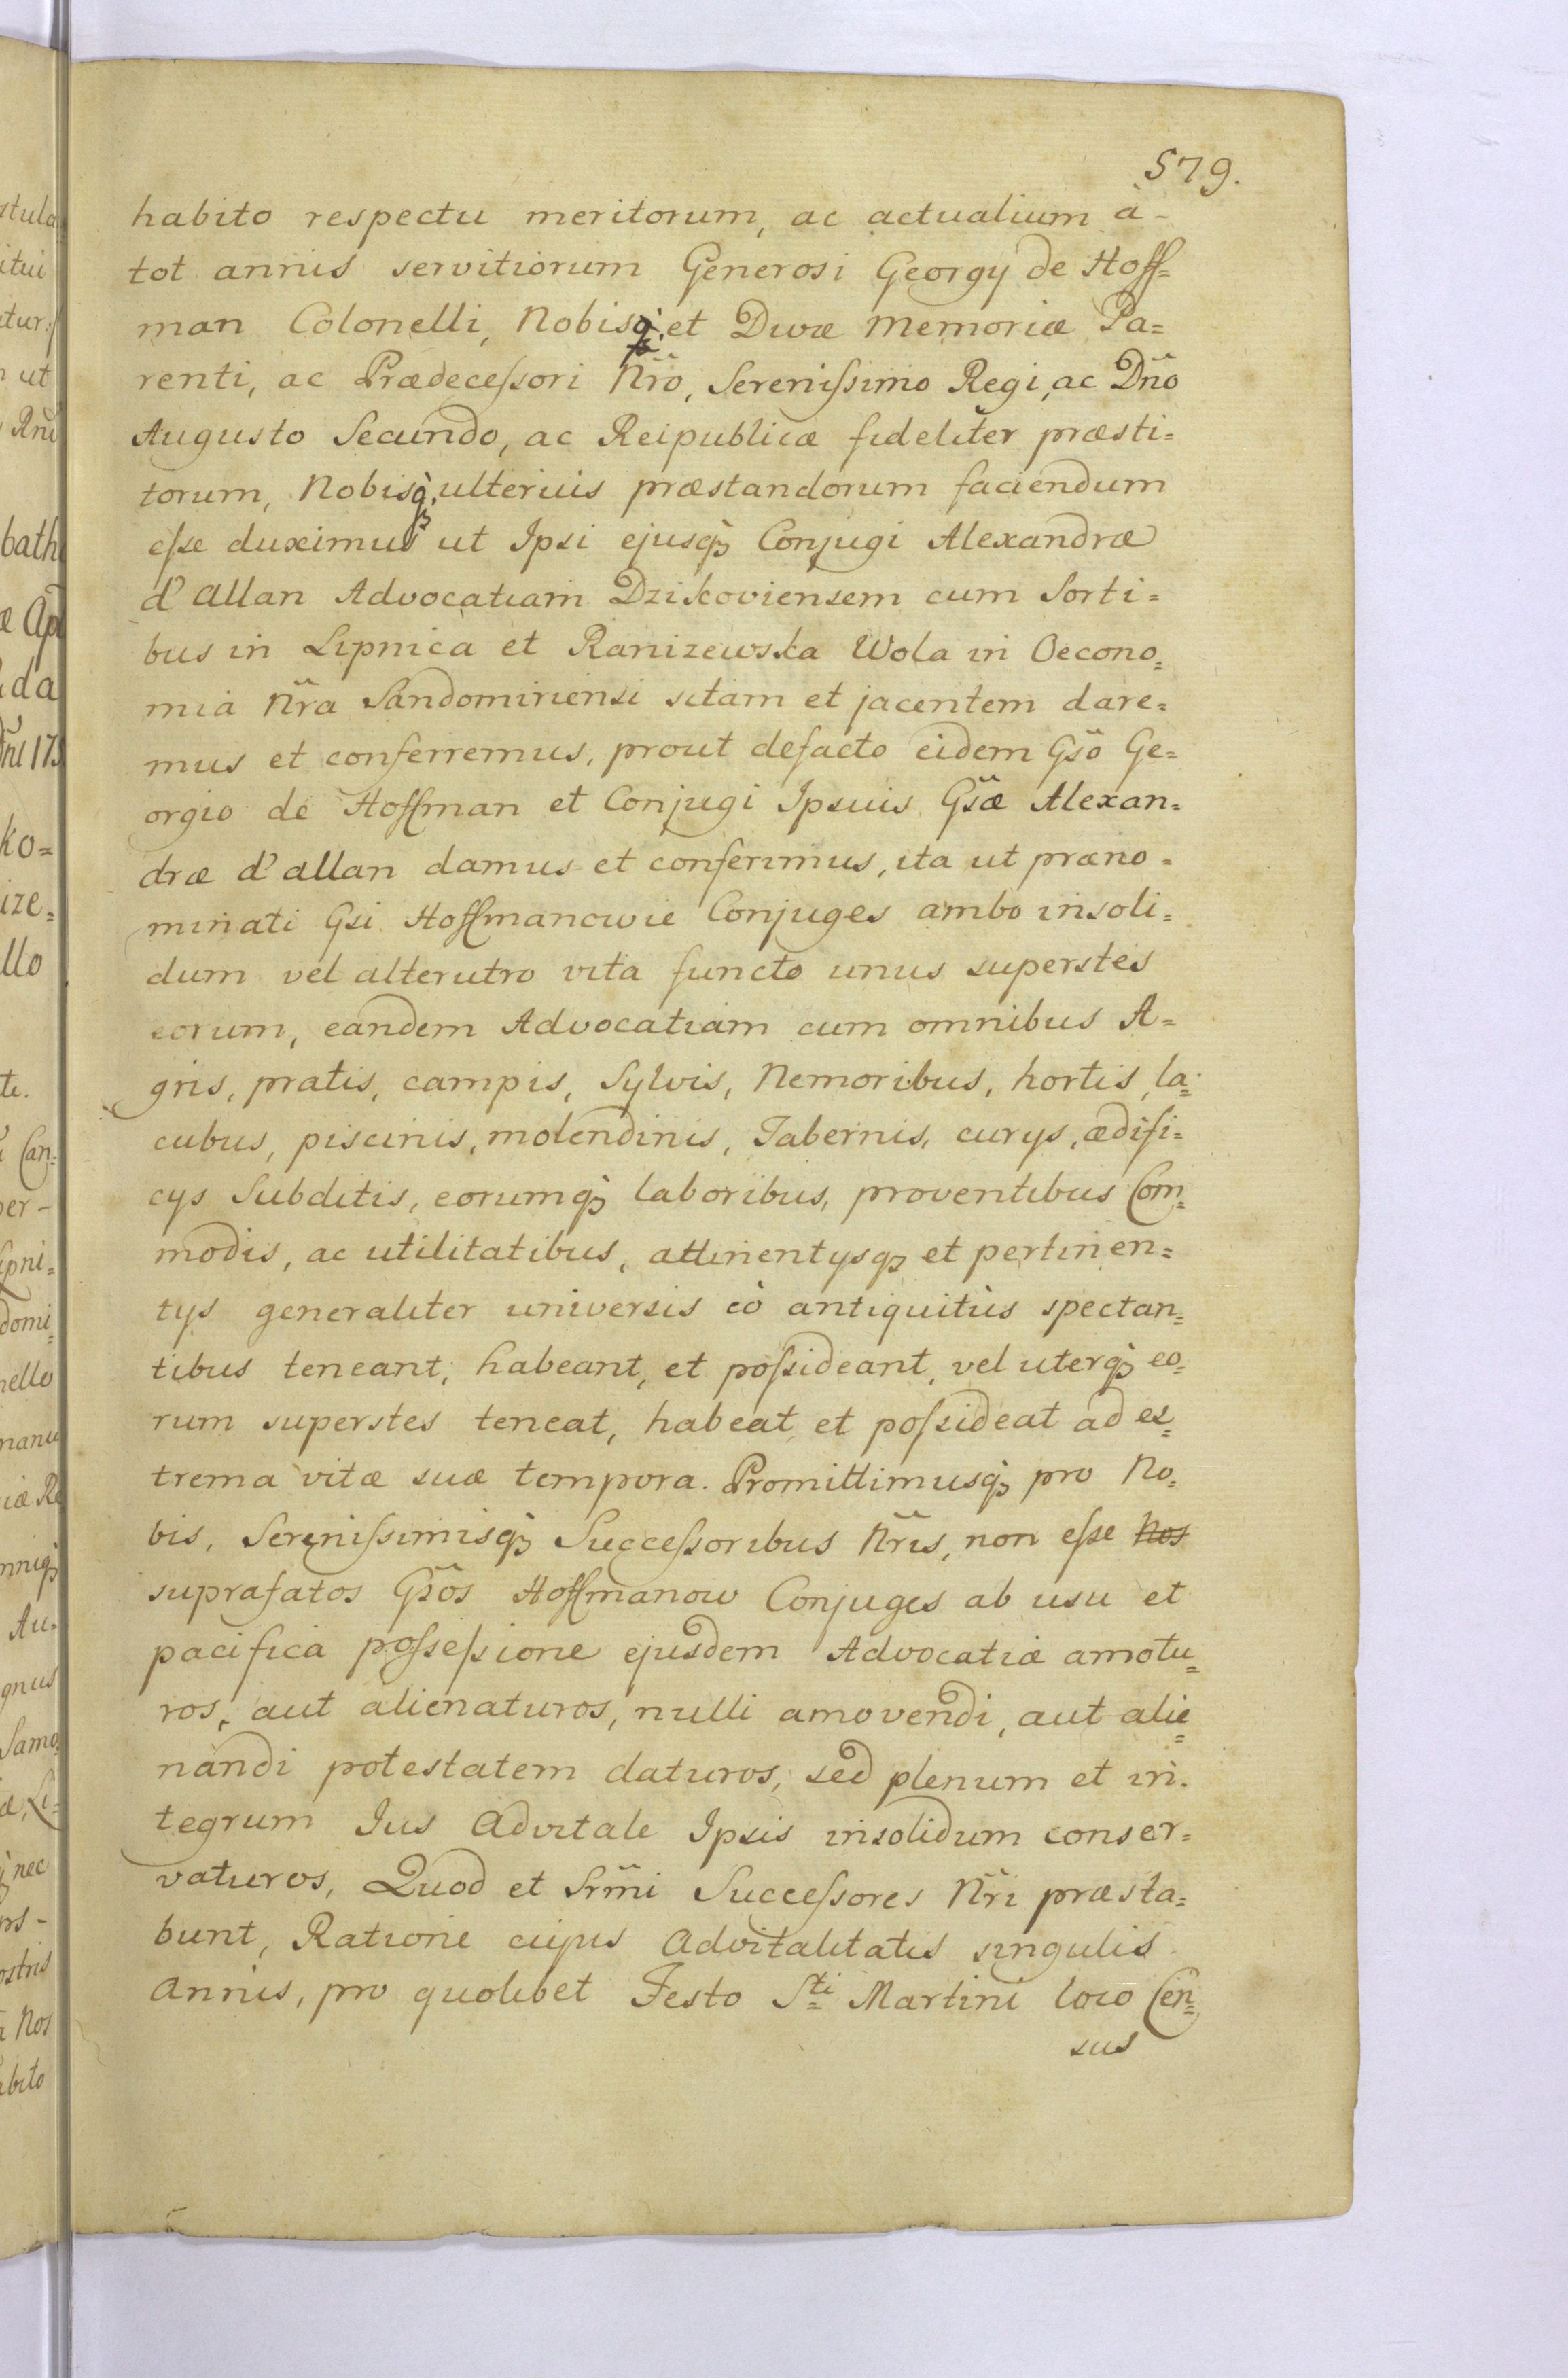 579.
habito respectu meritorum, ac actualium à-
tot annis servitiorum Generosi Georgy de Hoff=
man Colonelli, Nobisq̀ et Divæ Memoriæ Pa=
renti, ac Prædeceſsori Nr̃o, Sereniſsimo Regi, ac Dño
Augusto Secundo, ac Reipublicæ fideliter præsti=
torum, Nobisq̀ ulterius præstandorum faciendum
eſse duximus ut Ipsi ejusq̀ꝫ Conjugi Alexandræ
d'Allan Advocatiam Dzikoviensem cum Sorti=
bus in Lipnica et Ranizewska Wola in Oecono=
mia Nr̃a Sandomiriensi sitam et jacentem dare=
mus et conferremus, prout defacto eidem Gsõ Ge=
orgio de Hoffman et Conjugi Ipsius Gsæ̃ Alexan=
dræ d'allan damus et conferimus, ita ut præno=
minati Gsi Hoffmanowie Conjuges ambo insoli=
dum vel alterutro vita functo unus superstes
eorum, eandem Advocatiam cum omnibus A=
gris, pratis, campis, Sylvis, Nemoribus, hortis, la=
cubus, piscinis, molendinis, Tabernis, curys, ædifi=
cys Subditis, eorumq̀ꝫ laboribus, proventibus Com=
modis, ac utilitatibus, attinentysqꝫ et pertinen=
tys generaliter universis eò antiquitùs spectan=
tibus teneant, habeant, et poſsideant, vel uterq̀ꝫ eo=
rum superstes teneat, habeat et poſsideat ad ex=
trema vitæ suæ tempora. Promittimusq̀ꝫ pro No=
bis, Sereniſsimisq̀ꝫ Succeſsoribus Nr̃is, non eſse Nos
suprafatos Gsõs Hoffmanow Conjuges ab usu et
pacifica poſseſsione ejusdem Advocatiæ amotu=
ros, aut alienaturos, nulli amovendi, aut alie=
nandi potestatem daturos, sed plenum et in=
tegrum Jus Advitale Ipsis insolidum conser=
vaturos, Quod et Srm̃i Succeſsores Nr̃i præsta=
bunt, Ratione cujus Advitalitatis singulis
Annis, pro quolibet Festo Sti Martini loco Cen=
sus